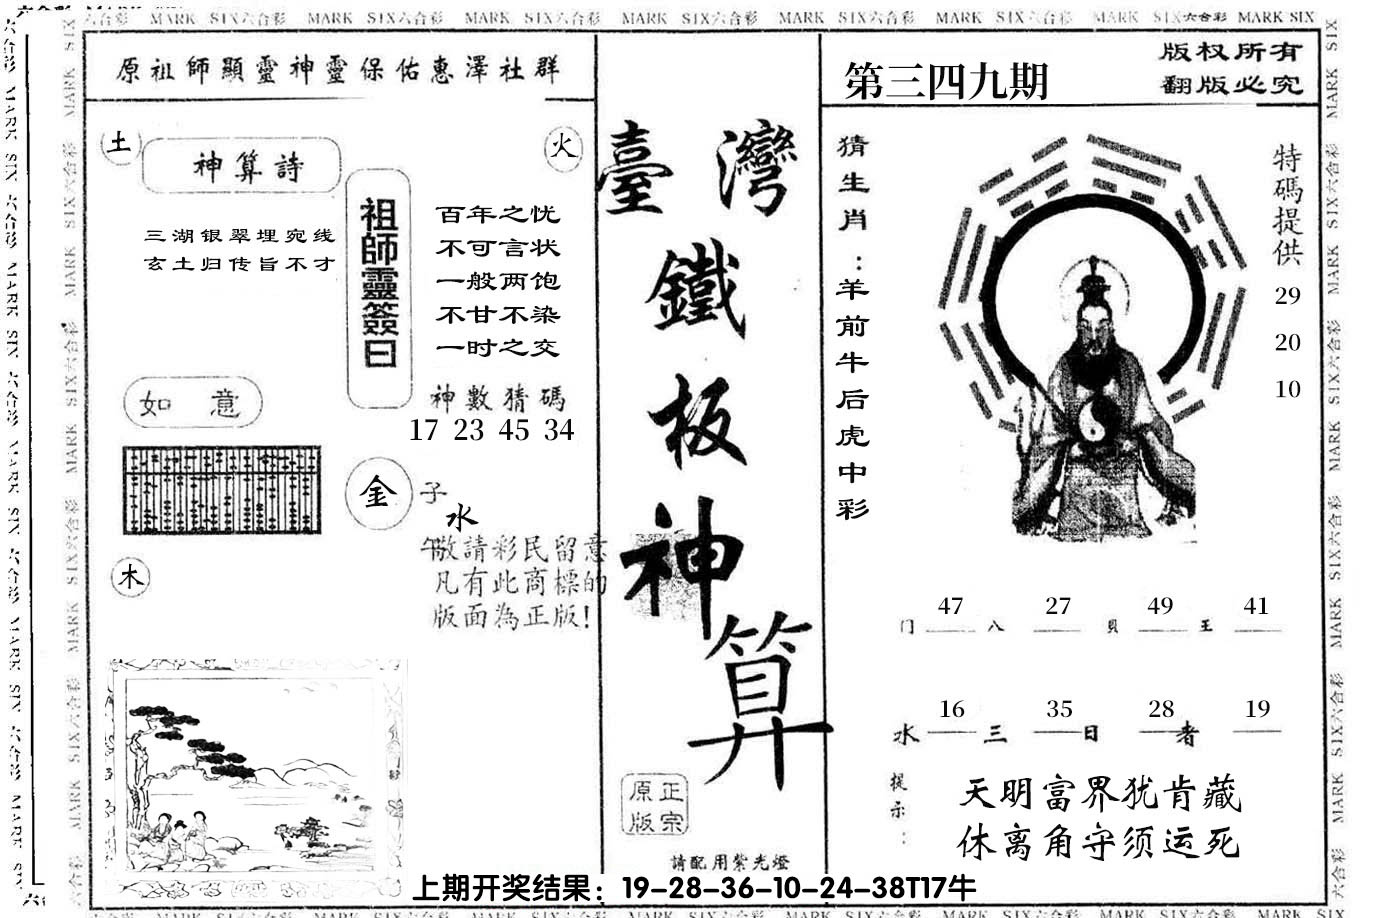 MARK SIX六合彩 MARK SIX六合彩 MARK SIX六合彩 MARK SIX六合彩 MARK SIX六合彩 MARK SIX六合彩 MARK SIX六合彩 MARK SIX
原祖師顯靈神靈保佑惠澤社群
土
神算詩
火
三湖银翠埋宛线
玄土归传旨不才
祖師靈簽曰
百年之忧
不可言状
一般两饱
不甘不染
一时之交
神數猜碼
17 23 45 34
如意
金
子
水
午
木
敬請彩民留意
凡有此商標的
版面為正版!
臺灣
鐵
板
神
算
正宗
原版
請配用紫光燈
第三四九期
版权所有
翻版必究
猜生肖:羊前牛后虎中彩
特碼提供
29
20
10
47 27 49 41
门 八 貝 王
16 35 28 19
水 三 日 者
提示:
天明富界犹肯藏
休离角守须运死
上期开奖结果：19-28-36-10-24-38T17牛